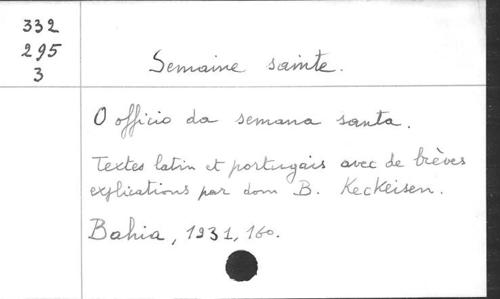 332
295
3
Semaine sainte.
O officio da semana santa.
Textes latin et portugais avec de brèves
explications par dom B. Keckeisen.
Bahia, 1931, 160.